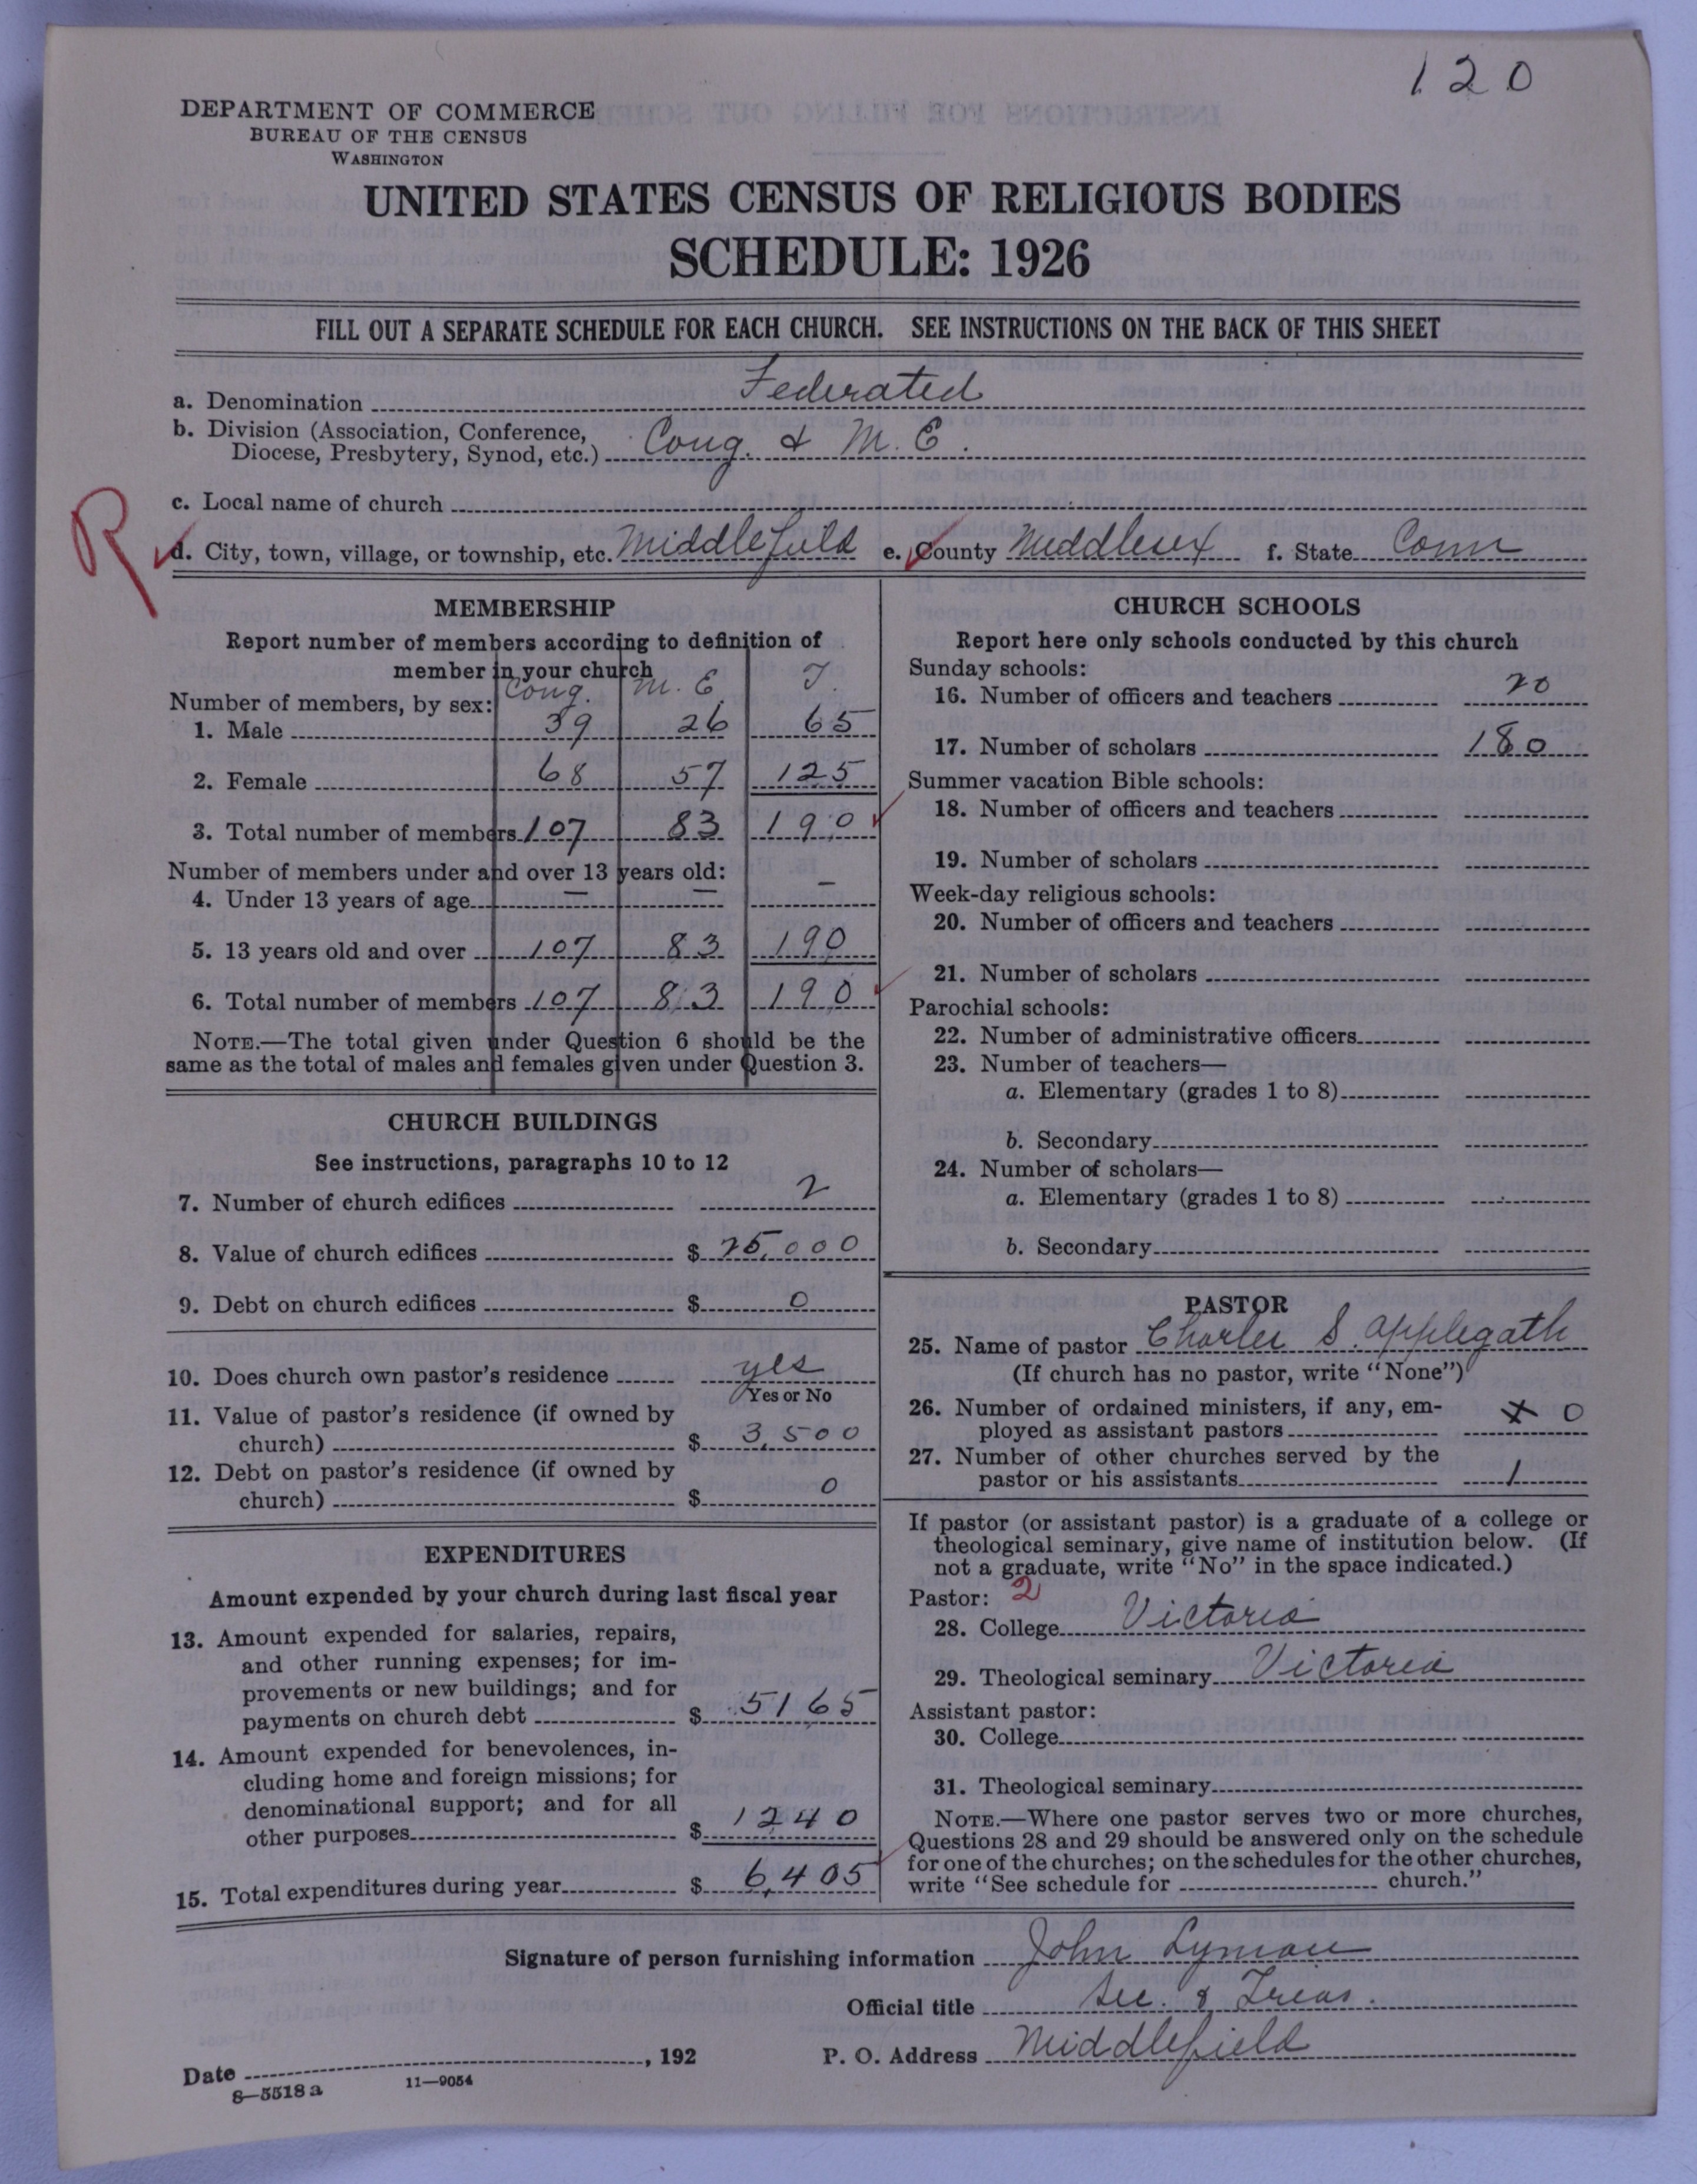 120
DEPARTMENT OF COMMERCE
BUREAU OF THE CENSUS
WASHINGTON
UNITED STATES CENSUS OF RELIGIOUS BODIES
SCHEDULE: 1926
FILL OUT A SEPARATE SCHEDULE FOR EACH CHURCH. SEE INSTRUCTIONS ON THE BACK OF THIS SHEET
a. Denomination Federated
b. Division (Association, Conference,
Diocese, Presbytery, Synod, etc.) Cong. & M. E.
c. Local name of church
R
d. City, town, village, or township, etc. Middlefield e. County Middlesex f. State Conn
MEMBERSHIP
Report number of members according to definition of
member in your church
Cong. M. E. T.
Number of members, by sex:
1. Male 39 26 65
2. Female 68 57 125
3. Total number of members 107 83 190
Number of members under and over 13 years old:
4. Under 13 years of age — — —
5. 13 years old and over 107 83 190
6. Total number of members 107 83 190
NOTE.—The total given under Question 6 should be the
same as the total of males and females given under Question 3.
CHURCH BUILDINGS
See instructions, paragraphs 10 to 12
7. Number of church edifices 2
8. Value of church edifices $ 25,000
9. Debt on church edifices $ 0
10. Does church own pastor's residence yes
Yes or No
11. Value of pastor's residence (if owned by
church) $ 3,500
12. Debt on pastor's residence (if owned by
church) $ 0
EXPENDITURES
Amount expended by your church during last fiscal year
13. Amount expended for salaries, repairs,
and other running expenses; for im-
provements or new buildings; and for
payments on church debt $ 5165
14. Amount expended for benevolences, in-
cluding home and foreign missions; for
denominational support; and for all
other purposes $ 1240
15. Total expenditures during year $ 6,405
CHURCH SCHOOLS
Report here only schools conducted by this church
Sunday schools:
16. Number of officers and teachers 20
17. Number of scholars 180
Summer vacation Bible schools:
18. Number of officers and teachers
19. Number of scholars
Week-day religious schools:
20. Number of officers and teachers
21. Number of scholars
Parochial schools:
22. Number of administrative officers
23. Number of teachers—
a. Elementary (grades 1 to 8)
b. Secondary
24. Number of scholars—
a. Elementary (grades 1 to 8)
b. Secondary
PASTOR
25. Name of pastor Charles S. Applegath
(If church has no pastor, write "None")
26. Number of ordained ministers, if any, em-
ployed as assistant pastors 0
27. Number of other churches served by the
pastor or his assistants 1
If pastor (or assistant pastor) is a graduate of a college or
theological seminary, give name of institution below. (If
not a graduate, write "No" in the space indicated.)
Pastor: 2
28. College Victoria
29. Theological seminary Victoria
Assistant pastor:
30. College
31. Theological seminary
NOTE.—Where one pastor serves two or more churches,
Questions 28 and 29 should be answered only on the schedule
for one of the churches; on the schedules for the other churches,
write "See schedule for church."
Signature of person furnishing information John Lyman
Official title Sec. & Treas.
Date , 192 P. O. Address Middlefield
8—5518a 11—9054